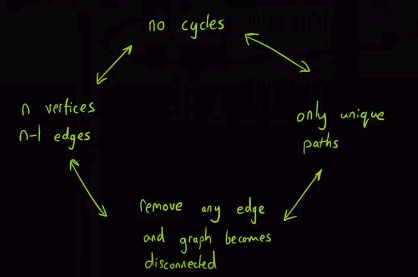 no cycles
n vertices
n-1 edges
only unique
paths
remove any edge
and graph becomes
disconnected